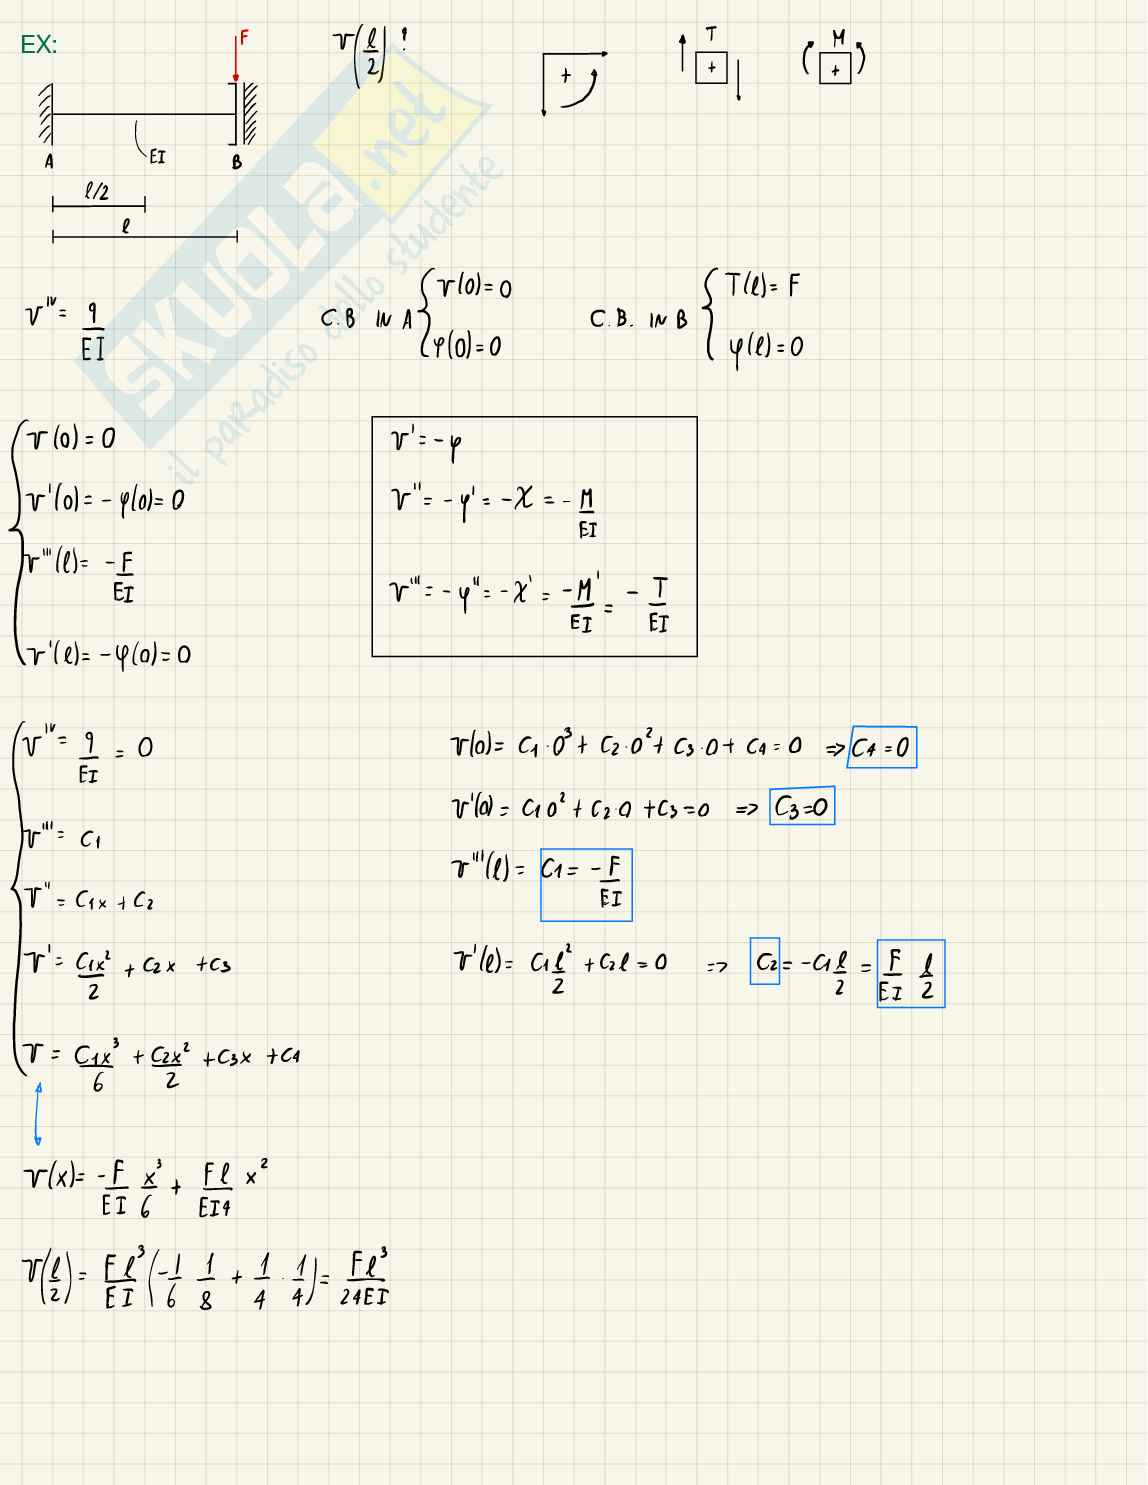 EX:
F
v(l/2) ?
+
T
+
M
+
A
EI
B
l/2
l
v^IV = q/EI
C.B IN A { v(0)=0
φ(0)=0
C.B. IN B { T(l)= F
φ(l)=0
v(0)=0
v'(0)= -φ(0)=0
v'''(l)= -F/EI
v'(l)= -φ(0)=0
v' = -φ
v'' = -φ' = -χ = -M/EI
v''' = -φ'' = -χ' = -M'/EI = -T/EI
v^IV = q/EI = 0
v''' = C1
v'' = C1x + C2
v' = C1x²/2 + C2x + C3
v = C1x³/6 + C2x²/2 + C3x + C4
v(0)= C1·0³ + C2·0² + C3·0 + C4 = 0 ⇒ C4=0
v'(0)= C1 0² + C2·0 + C3=0 ⇒ C3=0
v'''(l)= C1= -F/EI
v'(l)= C1 l²/2 + C2 l = 0 ⇒ C2 = -C1 l/2 = F/EI l/2
v(x)= -F/EI x³/6 + Fl/EI4 x²
v(l/2) = Fl³/EI (-1/6 1/8 + 1/4 · 1/4) = Fl³/24EI
SKUOLA.net
il paradiso dello studente